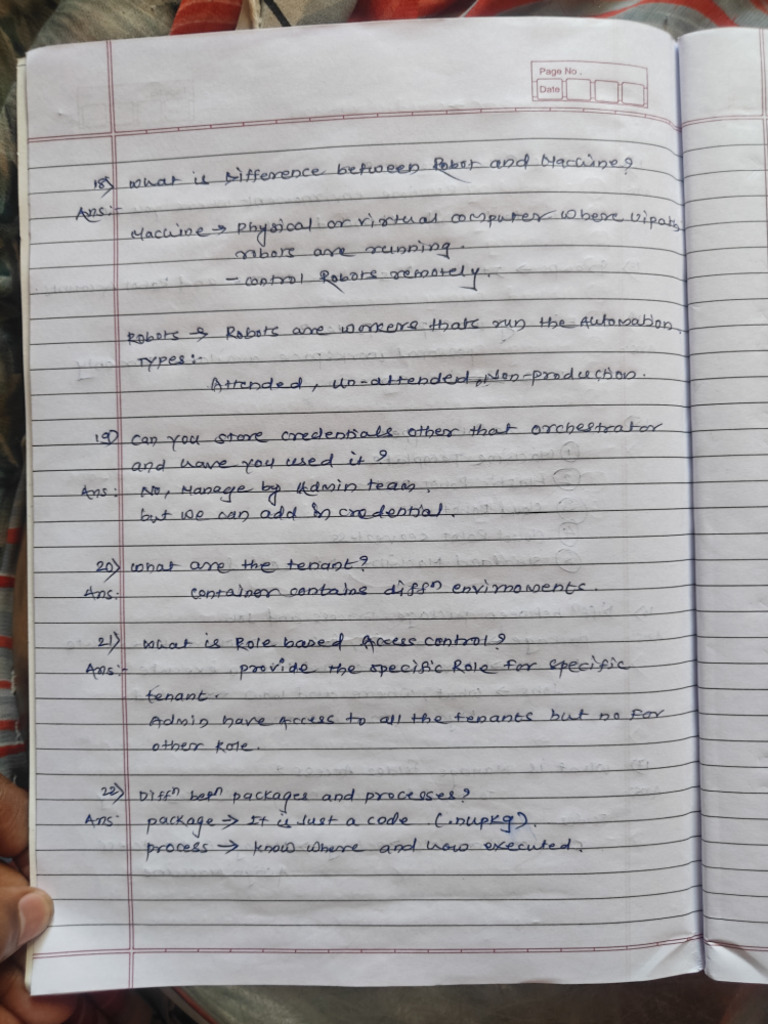 Page No.
Date
18) What is Difference between Robot and Machine?
Ans:-
Machine → Physical or virtual computer where Uipath
robots are running.
- control Robots remotely.
Robots → Robots are workers thats run the Automation.
Types:-
Attended, un-attended, Non-production.
19) can you store credentials other that orchestrator
and have you used it?
Ans: No, Manage by Admin team.
but we can add in credential.
20) What are the tenant?
Ans: container contains diffn envirnoments.
21) What is Role based Access control?
Ans:- provide the specific Role for specific
tenant.
Admin have Access to all the tenants but no for
other Role.
22) Diffn betn packages and processes?
Ans: package → It is Just a code (.nupkg).
process → know where and how executed.